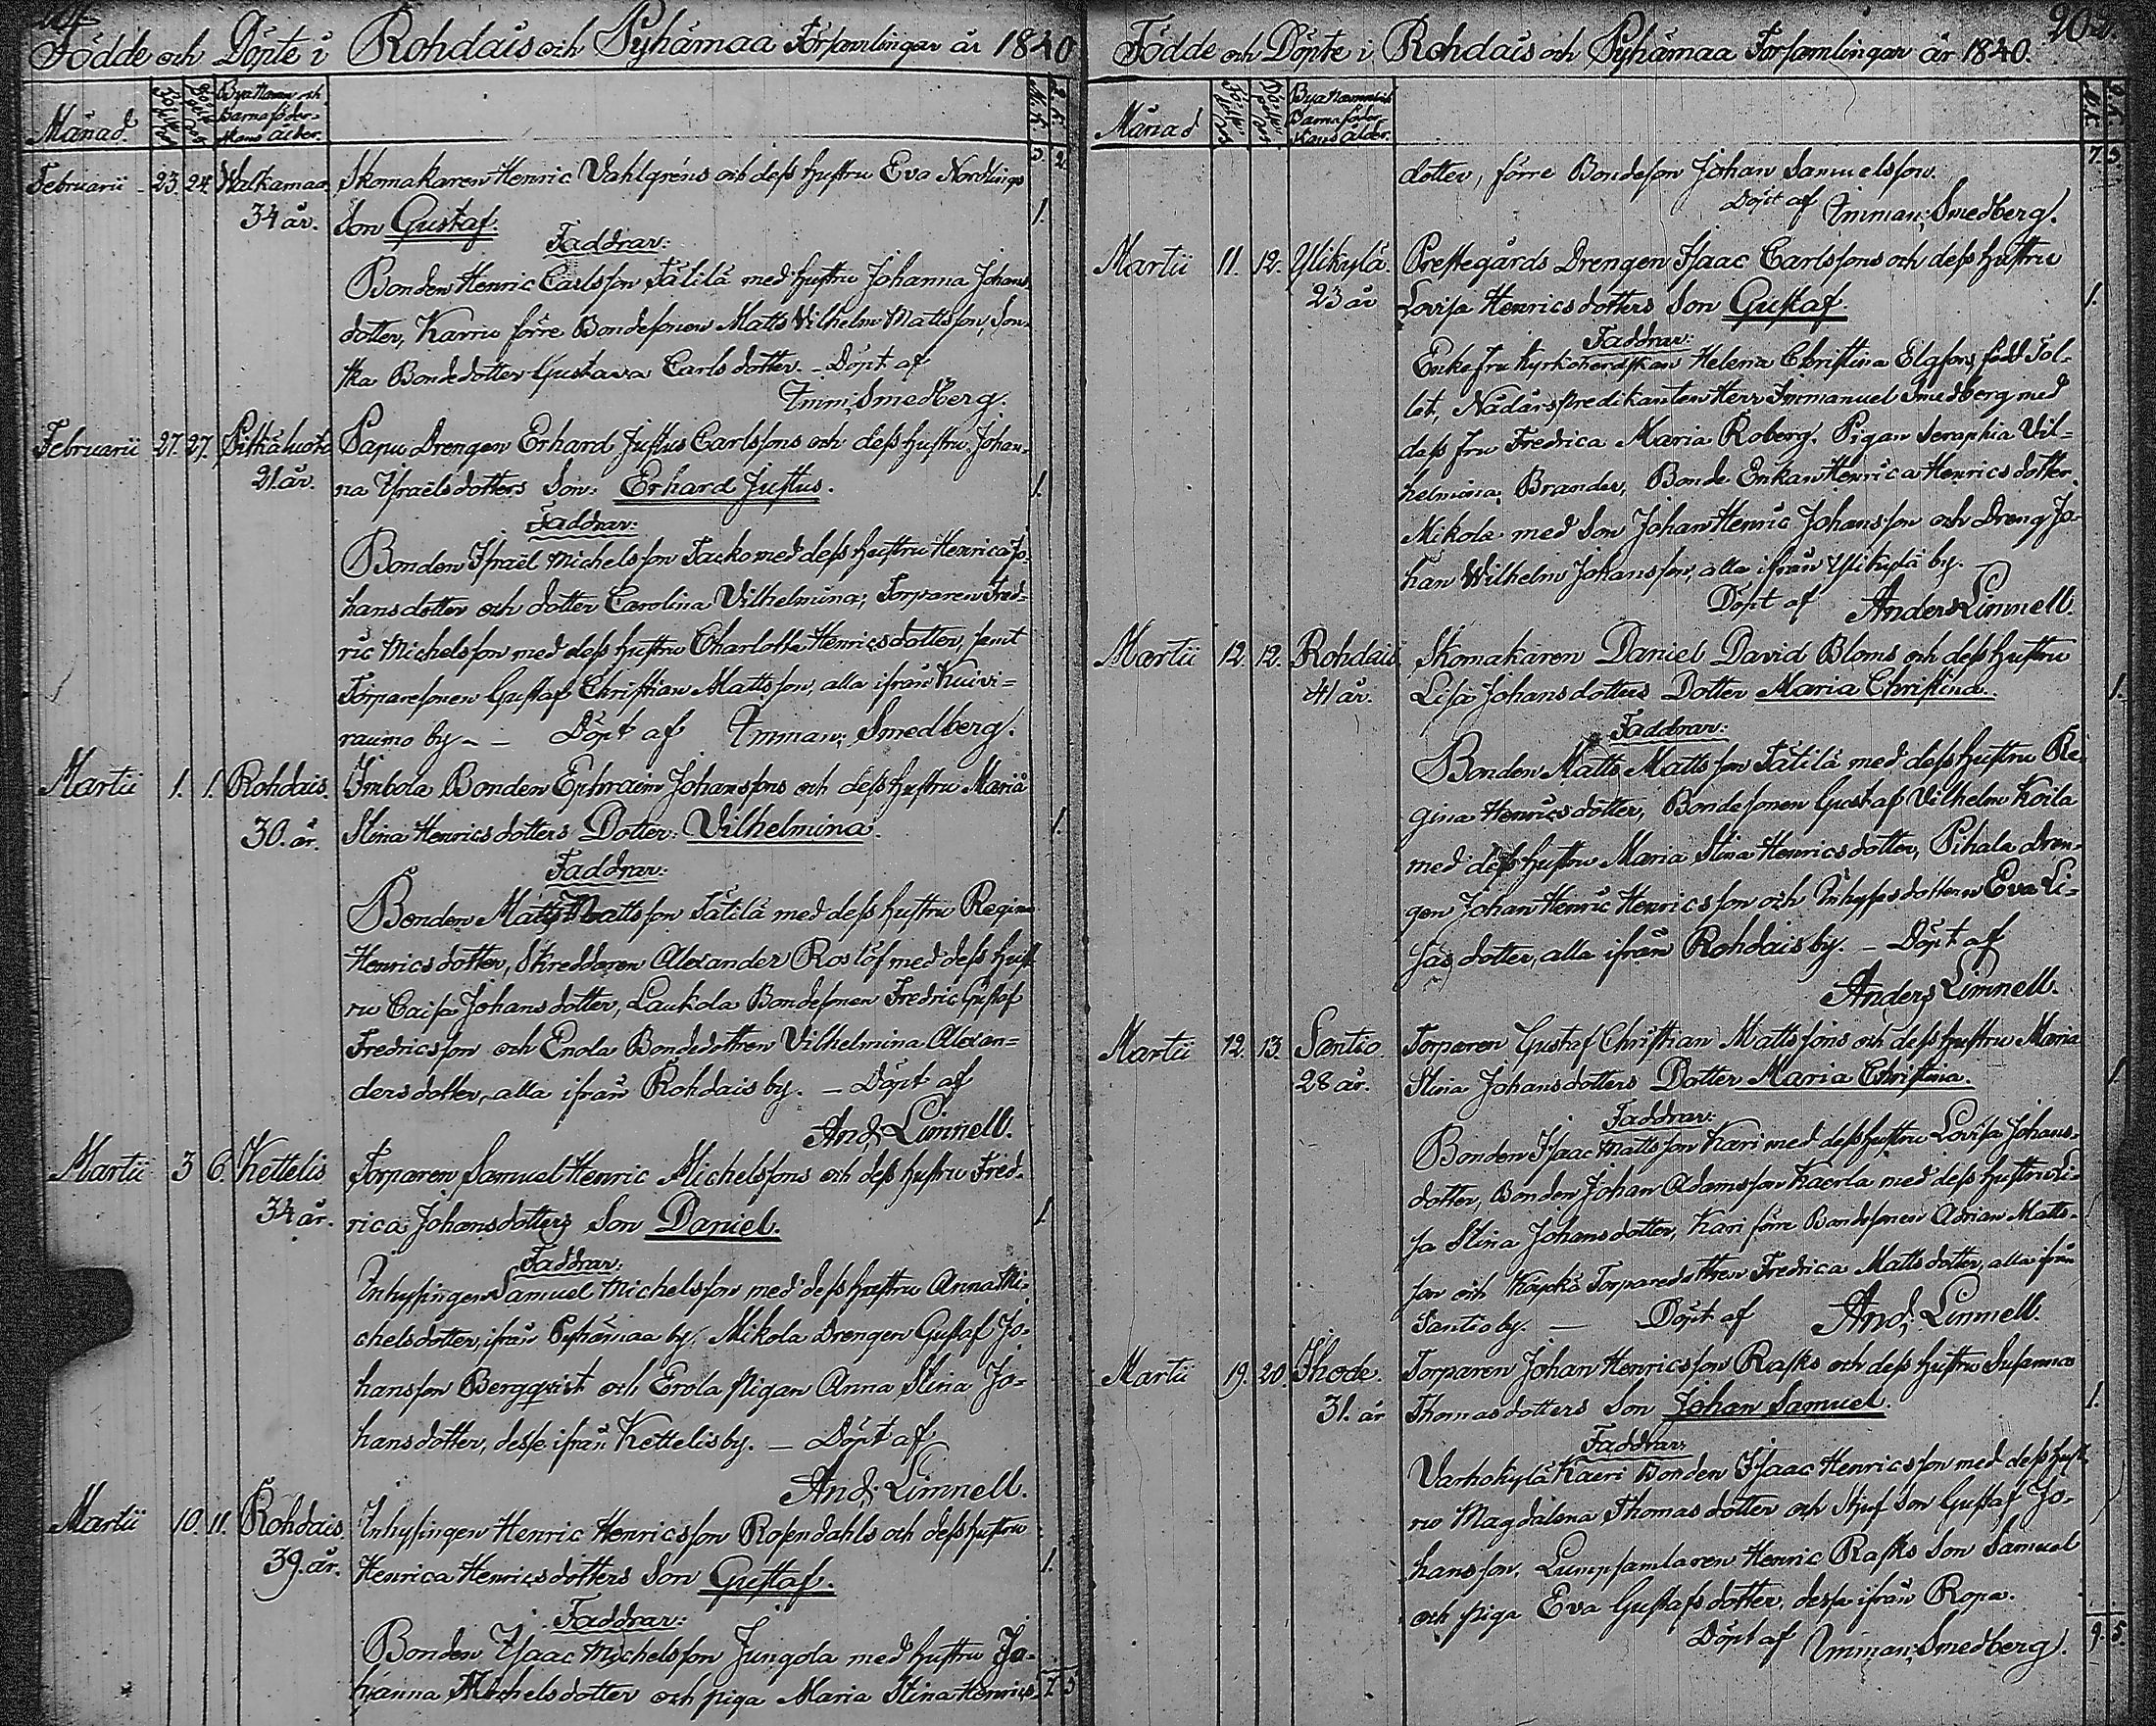 Födde och Döpte i Rohdais och Pyhämaa Församlingar år 1840
Månad.
Födelse dag
Döpelse dag
Bya Namn och
Barnaföder-
skans ålder.
M.k. Q.k.
3. 2.
Februarii 23. 24. Walkamaa Skomakaren Henric Vahlgréns och dess hustru Eva Nordlings
34 år. Son Gustaf. 1.
Faddrar:
Bonden Henric Carlsson Tätilä med hustru Johanna Johans-
dotter, Karrio förre Bondesonen Matts Vilhelm Mattsson, Son-
ska Bondedotter Gustava Carlsdotter. – Döpt af
Imm: Smedberg.
Februarii 27. 27. Pitkäluoto Papu Drengen Erhard Justus Carlssons och dess hustru Johan-
21. år. na Israelsdotters Son: Erhard Justus. 1.
Faddrar:
Bonden Israël Michelsson Tacko med dess hustru Henrica Jo-
hansdotter och dotter Carolina Vilhelmina; Torparen Fred-
ric Michelsson med dess hustru Charlotta Henricsdotter, samt
Torparesonen Gustaf Christian Mattsson, alla ifrån Kuivi-
raumo by – – Döpt af Imman: Smedberg.
Martii 1. 1. Rohdais. Imbola Bonden Ephraim Johanssons och dess hustru Maria
30. år. Stina Henricsdotters Dotter: Vilhelmina. 1.
Faddrar:
Bonden Matts Mattsson Tätilä med dess hustru Regina
Henricsdotter, Skreddaren Alexander Roslöf med dess hust-
ru Caisa Johansdotter, Laukola Bondesonen Fredric Gustaf
Fredricsson och Enola Bondedottren Vilhelmina Alexan-
dersdotter, alla ifrån Rohdais by. – Döpt af
And: Limnell.
Martii 3 6. Kettelis Torparen Samuel Henric Michelssons och dess hustru Fred-
34 år. rica Johansdotters Son Daniel. 1.
Faddrar:
Inhysingen Samuel Michelsson med dess hustru Anna Mi-
chelsdotter, ifrån Pyhämaa by, Mikola Drengen Gustaf Jo-
hansson Bergqvist och Erola pigan Anna Stina Jo-
hansdotter, desse ifrån Kettelis by. – Döpt af
And: Limnell.
Martii 10. 11. Rohdais. Inhysingen Henric Henricsson Rosendahls och dess hustru
39. år. Henrica Henricsdotters Son Gustaf. 1.
Faddrar:
Bonden Isaac Michelsson Jungola med hustru Jo-
hanna Michelsdotter och piga Maria Stina Henrics- 7. 3
202.
Födde och Döpte i Rohdais och Pyhämaa Församlingar år 1840.
Månad
Födelse dag
Döpelse dag
Bya Namn och
Barnaföder-
skans ålder.
M.k. Q.k.
7. 3.
dotter, förre Bondeson Johan Samuelsson.
Döpt af Imman: Smedberg.
Martii 11. 12. Ylikylä. Prestegårds Drengen Isaac Carlssons och dess hustru
23 år Lovisa Henricsdotters Son Gustaf 1.
Faddrar:
Enkefru Kyrkoherdskan Helena Christina Elgfors, född Pol-
let, Nådårspredikanten Herr Immanuel Smedberg med
dess fru Fredrica Maria Roberg. Pigan Seraphia Vil-
helmina Brander, Bonde Enkan Henrica Henricsdotter
Mikola med Son Johan Henric Johansson och Dreng Jo-
han Wilhelm Johansson, alla ifrån Ylikylä by.
Döpt af Anders Limnell.
Martii 12. 12. Rohdais. Skomakaren Daniel David Bloms och dess hustru
41 år. Lisa Johansdotters Dotter Maria Christina. 1.
Faddrar:
Bonden Matts Mattsson Tätilä med dess hustru Re-
gina Henricsdotter, Bondesonen Gustaf Vilhelm Koila
med dess hustru Maria Stina Henricsdotter, Pihala dren-
gen Johan Henric Henricsson och Inhysesdottern Eva Li-
sas dotter, alla ifrån Rohdais by. – Döpt af
Anders Limnell.
Martii 12. 13. Santio. Torparen Gustaf Christian Mattssons och dess hustru Maria
28 år. Stina Johansdotters Dotter Maria Christina. 1.
Faddrar:
Bonden Isaac Mattsson Kari med dess hustru Lovisa Johans-
dotter, Bonden Johan Adamsson Kaerla med dess hustru Li-
sa Stina Johansdotter, Kari förre Bondesonen Adrian Matts-
son och Köyckä Torparedottren Fredrica Mattsdotter, alla ifrån
Santio by. – Döpt af And: Limnell.
Martii 19. 20. Ihode. Torparen Johan Henricsson Rasks och dess hustru Susanna
31. år Thomasdotters Son Johan Samuel. 1.
Faddrar:
Varhokylä Kaeri Bonden Isaac Henricsson med dess hust-
ru Magdalena Thomasdotter och Stjuf Son Gustaf Jo-
hansson, Lumpsamlaren Henric Rasks Son Samuel
och piga Eva Gustafsdotter, dessa ifrån Ropa.
Döpt af Imman: Smedberg. 9. 5.